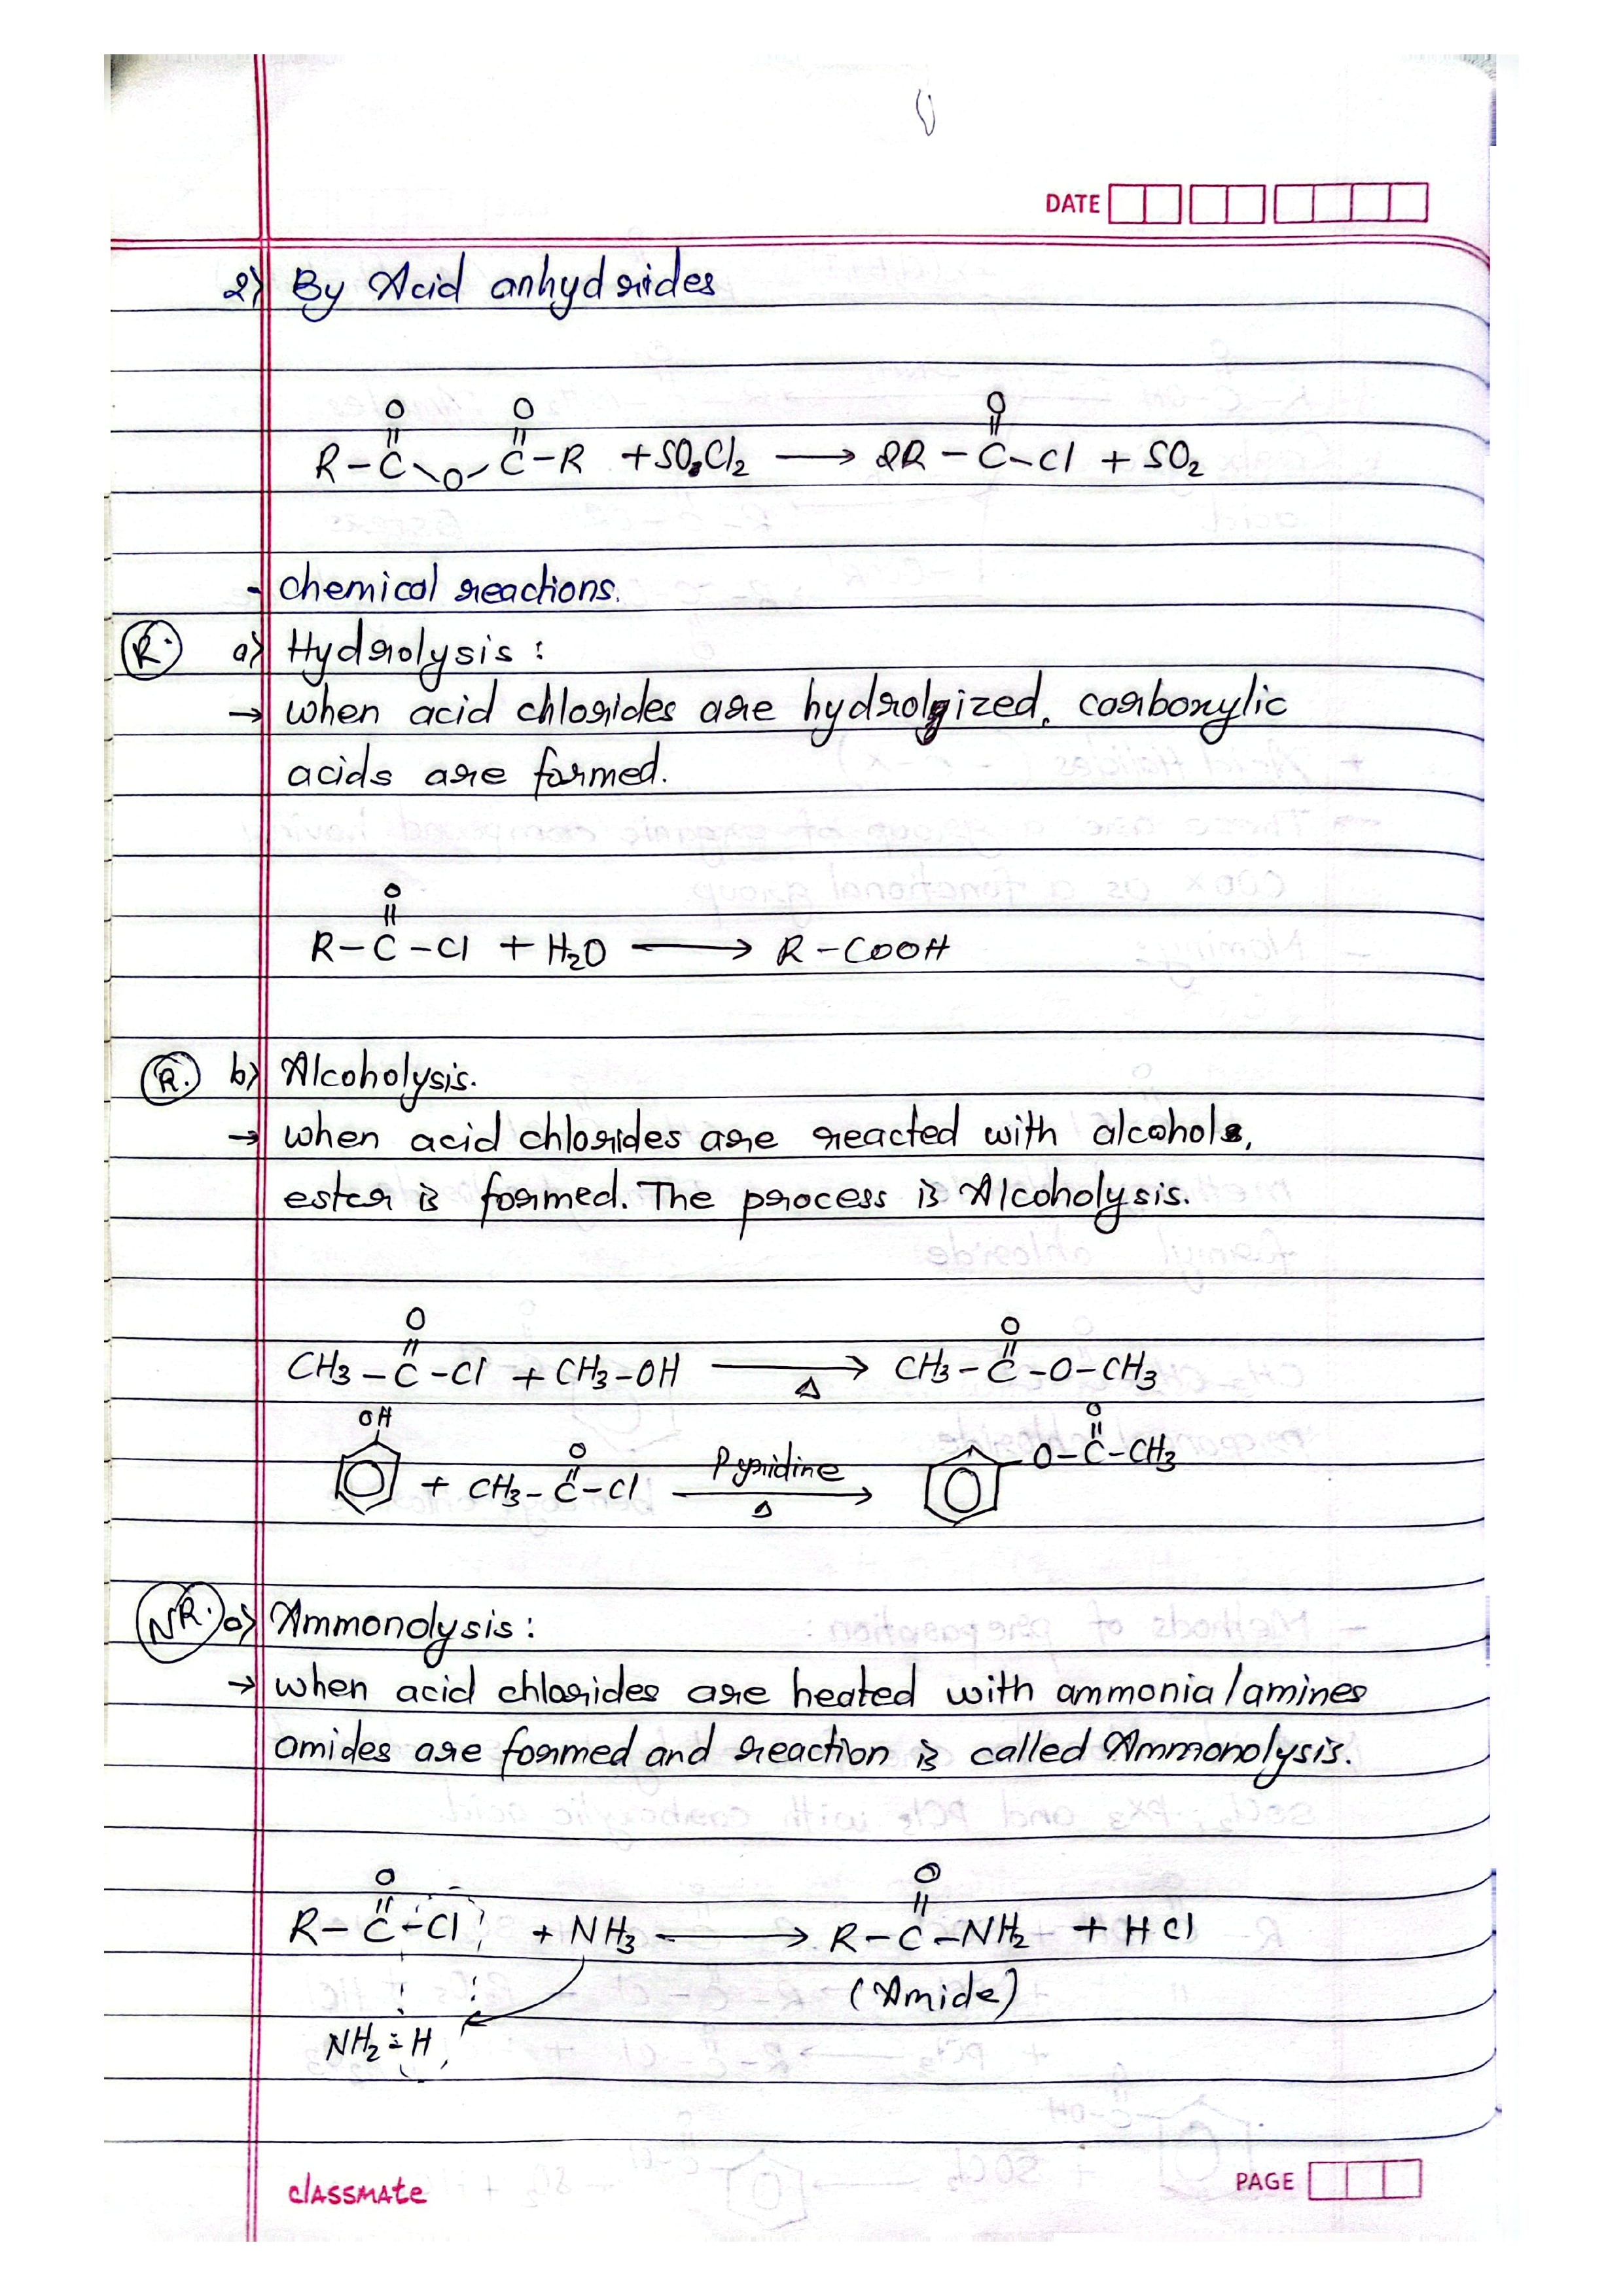 DATE
2) By Acid anhydrides
O O O
R-C-O-C-R + SO2Cl2 → 2R-C-Cl + SO2
- chemical reactions.
R. a) Hydrolysis :
→ when acid chlorides are hydrolyized, carboxylic
acids are formed.
O
R-C-Cl + H2O → R-COOH
R. b) Alcoholysis.
→ when acid chlorides are reacted with alcohols,
ester is formed. The process is Alcoholysis.
O O
CH3-C-Cl + CH3-OH → CH3-C-O-CH3
Δ
OH O O
+ CH3-C-Cl Pyridine → O-C-CH3
Δ
NR. a) Ammonolysis :
→ when acid chlorides are heated with ammonia/amines
amides are formed and reaction is called Ammonolysis.
O O
R-C-Cl + NH3 → R-C-NH2 + HCl
(Amide)
NH2-H
classmate PAGE